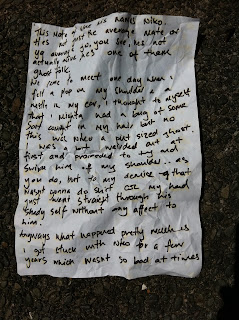 This mate of mine was named Niko.
He's not just the average mate of
ya average Jo, you see, he's not
actually alive, he's one of them
ghost folk.
We come to meet one day when I
felt a on my shoulder a
while in my car, I thought to myself
that I mighta had a bug of some
sort caught in my hair but no
this was Niko a pint sized ghost.
I was a bit weirded out at
first and proceeded to try and
swipe him of my shoulder.. as
you do, but to my demise that
wasnt gonna do shit coz my hand
just went straight through his
self without any affect to
him.
Anyways what happened pretty much is
i got stuck with Niko for a few
years which wasnt so bad at times